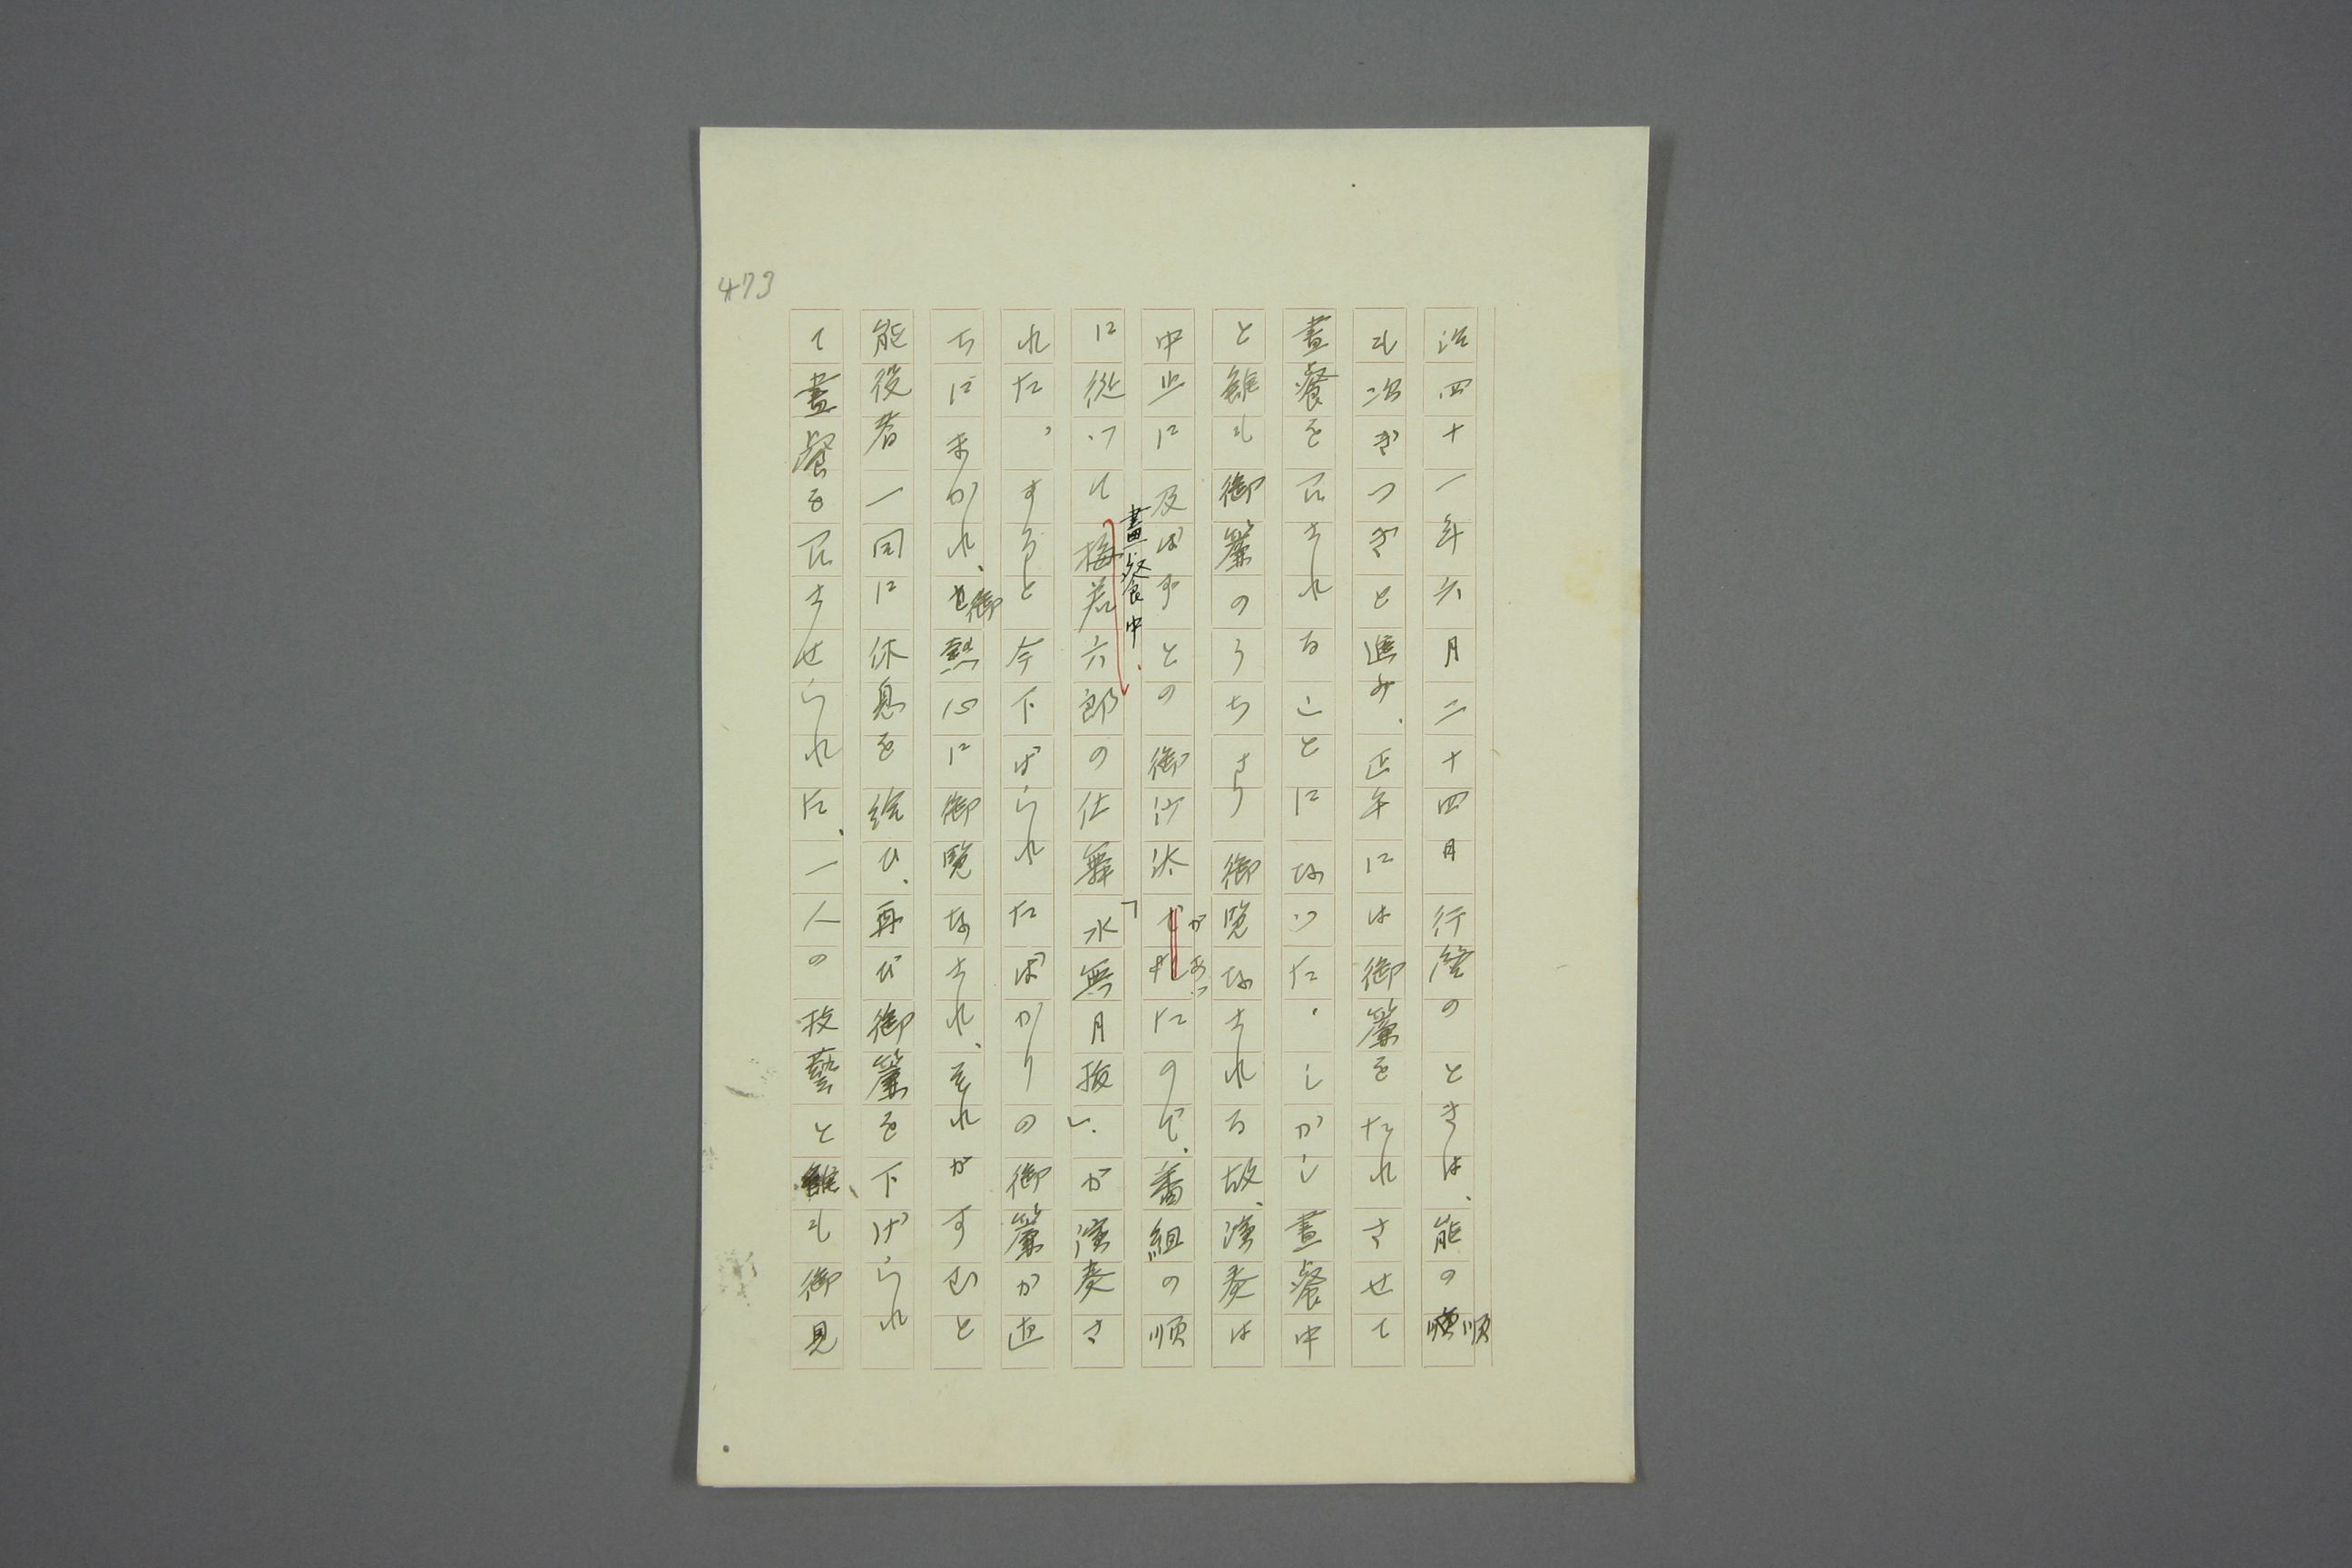 473
治四十一年六月二十四日行啓のときは、能の順
も次ぎつぎと進み、正午には御簾をたれさせて
晝餐を召されることになつた。しかし晝餐中
と雖も御簾のうちより御覧なされる故、演奏は
中止に及ばずとの御沙汰があつたので、番組の順
に從つて晝餐中、梅若六郎の仕舞「水無月抜」が演奏さ
れた、すると今下ばられたばかりの御簾か直
ちにまかれ、御熱心に御覧なされ、それがすむと
能役者一同に休息を給ひ、再び御簾を下げられ
て晝餐を召させられた、一人の技藝と雖も御見